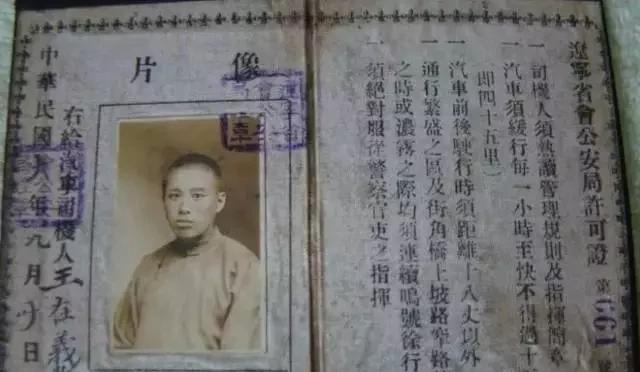 遼寧省會公安局許可證 第
一 司機人須熟讀管理規則及指揮簡章
一 汽車須緩行每一小時至快不得過十
即四十五里
一 汽車前後駛行時須距離十八丈以外
一 通行繁盛之區及街角橋上坡路窄路
之時或濃霧之際均須連續鳴號徐行
一 須絕對服從警察官吏之指揮
像片
右給汽車司機人王在義
中華民國年九月日